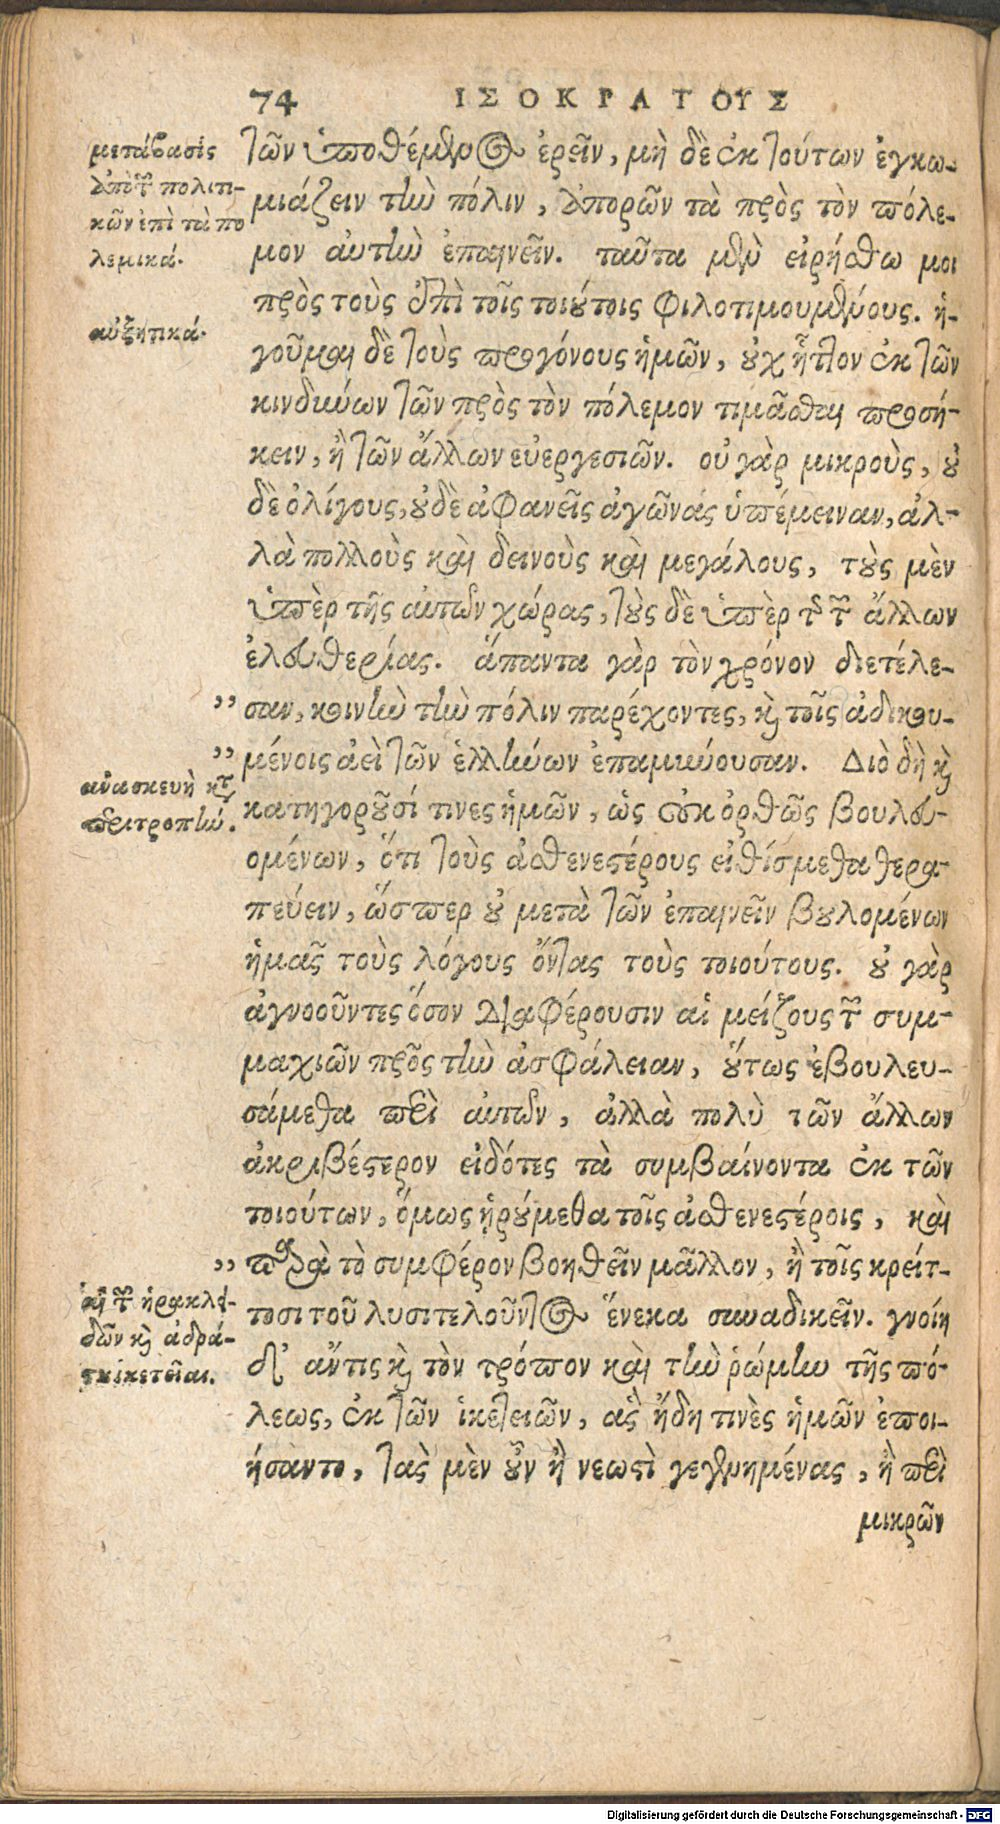 74 ΙΣΟΚΡΑΤΟΥΣ
μετάβασις
ἀπὸ τῶν πολιτι-
κῶν ἐπὶ τὰ πο
λεμικά.
αὐξητικά.
τῶν ὑποθέμενος ἐρεῖν, μὴ δὲ ἐκ τούτων ἐγκω-
μιάζειν τὴν πόλιν, ἀπορῶν τὰ πρὸς τὸν πόλε-
μον αὐτὴν ἐπαινεῖν. ταῦτα μὲν εἰρήσθω μοι
πρὸς τοὺς ἐπὶ τοῖς τοιούτοις φιλοτιμουμένους. ἡ-
γοῦμαι δὲ τοὺς προγόνους ἡμῶν, οὐχ ἧττον ἐκ τῶν
κινδύνων τῶν πρὸς τὸν πόλεμον τιμᾶσθαι προσή-
κειν, ἢ τῶν ἄλλων εὐεργεσιῶν. οὐ γὰρ μικροὺς, οὐ
δὲ ὀλίγους, οὐδὲ ἀφανεῖς ἀγῶνας ὑπέμειναν, ἀλ-
λὰ πολλοὺς καὶ δεινοὺς καὶ μεγάλους, τοὺς μὲν
ὑπὲρ τῆς αὑτῶν χώρας, τοὺς δὲ ὑπὲρ τῆς τῶν ἄλλων
ἐλευθερίας. ἅπαντα γὰρ τὸν χρόνον διετέλε-
” σαν, κοινὴν τὴν πόλιν παρέχοντες, καὶ τοῖς ἀδικου-
” μένοις ἀεὶ τῶν ἑλλήνων ἐπαμύνουσαν. Διὸ δὴ καὶ
ἀνασκευὴ κτ
περιτροπήν.
κατηγοροῦσί τινες ἡμῶν, ὡς οὐκ ὀρθῶς βουλευ-
ομένων, ὅτι τοὺς ἀσθενεστέρους εἰθίσμεθα θερα-
πεύειν, ὥσπερ οὐ μετὰ τῶν ἐπαινεῖν βουλομένων
ἡμᾶς τοὺς λόγους ὄντας τοὺς τοιούτους. οὐ γὰρ
ἀγνοοῦντες ὅσον διαφέρουσιν αἱ μείζους τῶν συμ-
μαχιῶν πρὸς τὴν ἀσφάλειαν, οὕτως ἐβουλευ-
σάμεθα περὶ αὐτῶν, ἀλλὰ πολὺ τῶν ἄλλων
ἀκριβέστερον εἰδότες τὰ συμβαίνοντα ἐκ τῶν
τοιούτων, ὅμως ᾑρούμεθα τοῖς ἀσθενεστέροις, καὶ
” παρὰ τὸ συμφέρον βοηθεῖν μᾶλλον, ἢ τοῖς κρείτ-
αἱ τῶν ἡρακλει-
δῶν καὶ ἀδρά-
στου ἱκετεῖαι.
τοσι τοῦ λυσιτελοῦντος ἕνεκα συναδικεῖν. γνοίη
δ’ ἄν τις καὶ τὸν τρόπον καὶ τὴν ῥώμην τῆς πό-
λεως, ἐκ τῶν ἱκετειῶν, ἃς ἤδη τινὲς ἡμῶν ἐποι-
ήσαντο, τὰς μὲν οὖν ἢ νεωστὶ γεγενημένας, ἢ περὶ
μικρῶν
Digitalisierung gefördert durch die Deutsche Forschungsgemeinschaft - DFG